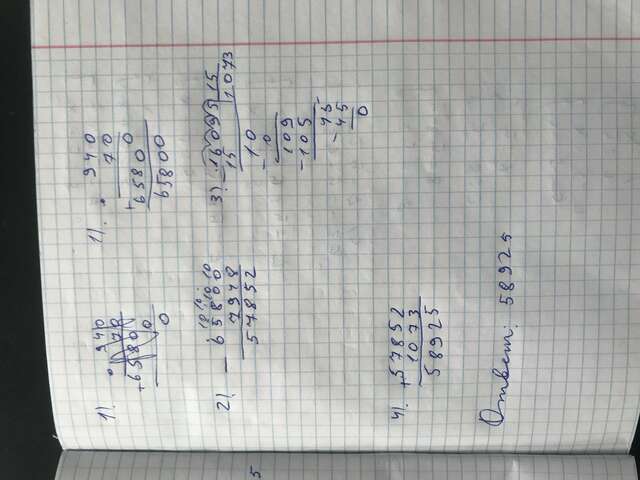 1). 940
70
+65800
0
0
1). 940
70
0
+65800
65800
2). - 65800
7948
57852
3). -16095 | 15
15 | 1073
10
- 0
109
-105
45
-45
0
4). +57852
1073
58925
Ответ: 58925
5